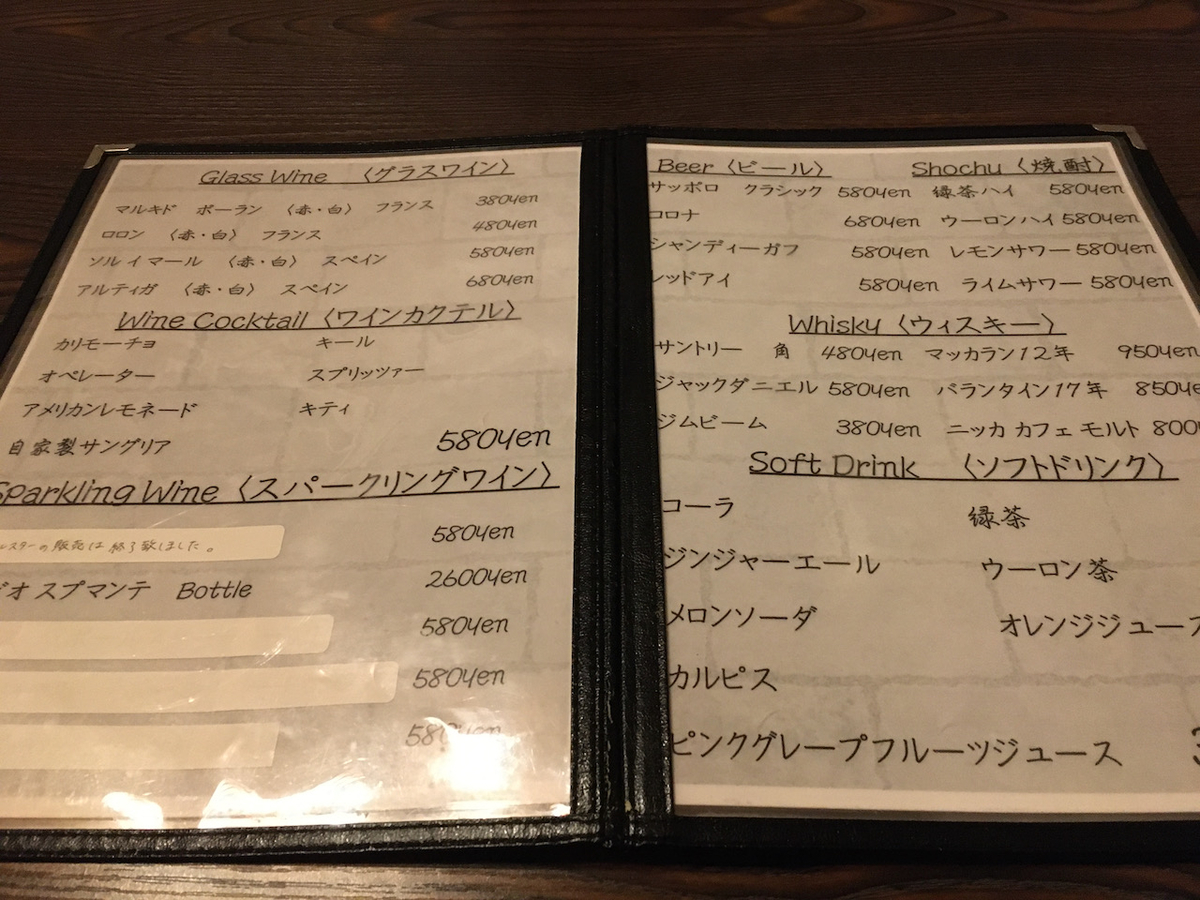 Glass Wine 〈グラスワイン〉
マルキド ボーラン 〈赤・白〉 フランス 380yen
ロロン 〈赤・白〉 フランス 480yen
ソル イ マール 〈赤・白〉 スペイン 580yen
アルティガ 〈赤・白〉 スペイン 680yen
Wine Cocktail 〈ワインカクテル〉
カリモーチョ キール
オペレーター スプリッツァー
アメリカンレモネード キティ
自家製サングリア 580yen
Sparkling Wine 〈スパークリングワイン〉
ルスターの販売は終了致しました。 580yen
オ スプマンテ Bottle 2600yen
580yen
580yen
580yen
Beer 〈ビール〉 Shochu 〈焼酎〉
サッポロ クラシック 580yen 緑茶ハイ 580yen
コロナ 680yen ウーロンハイ 580yen
シャンディーガフ 580yen レモンサワー 580yen
レッドアイ 580yen ライムサワー 580yen
Whisky 〈ウィスキー〉
サントリー 角 480yen マッカラン12年 950yen
ジャックダニエル 580yen バランタイン17年 850ye
ジムビーム 380yen ニッカ カフェ モルト 800
Soft Drink 〈ソフトドリンク〉
コーラ 緑茶
ジンジャーエール ウーロン茶
メロンソーダ オレンジジュース
カルピス
ピンクグレープフルーツジュース 3